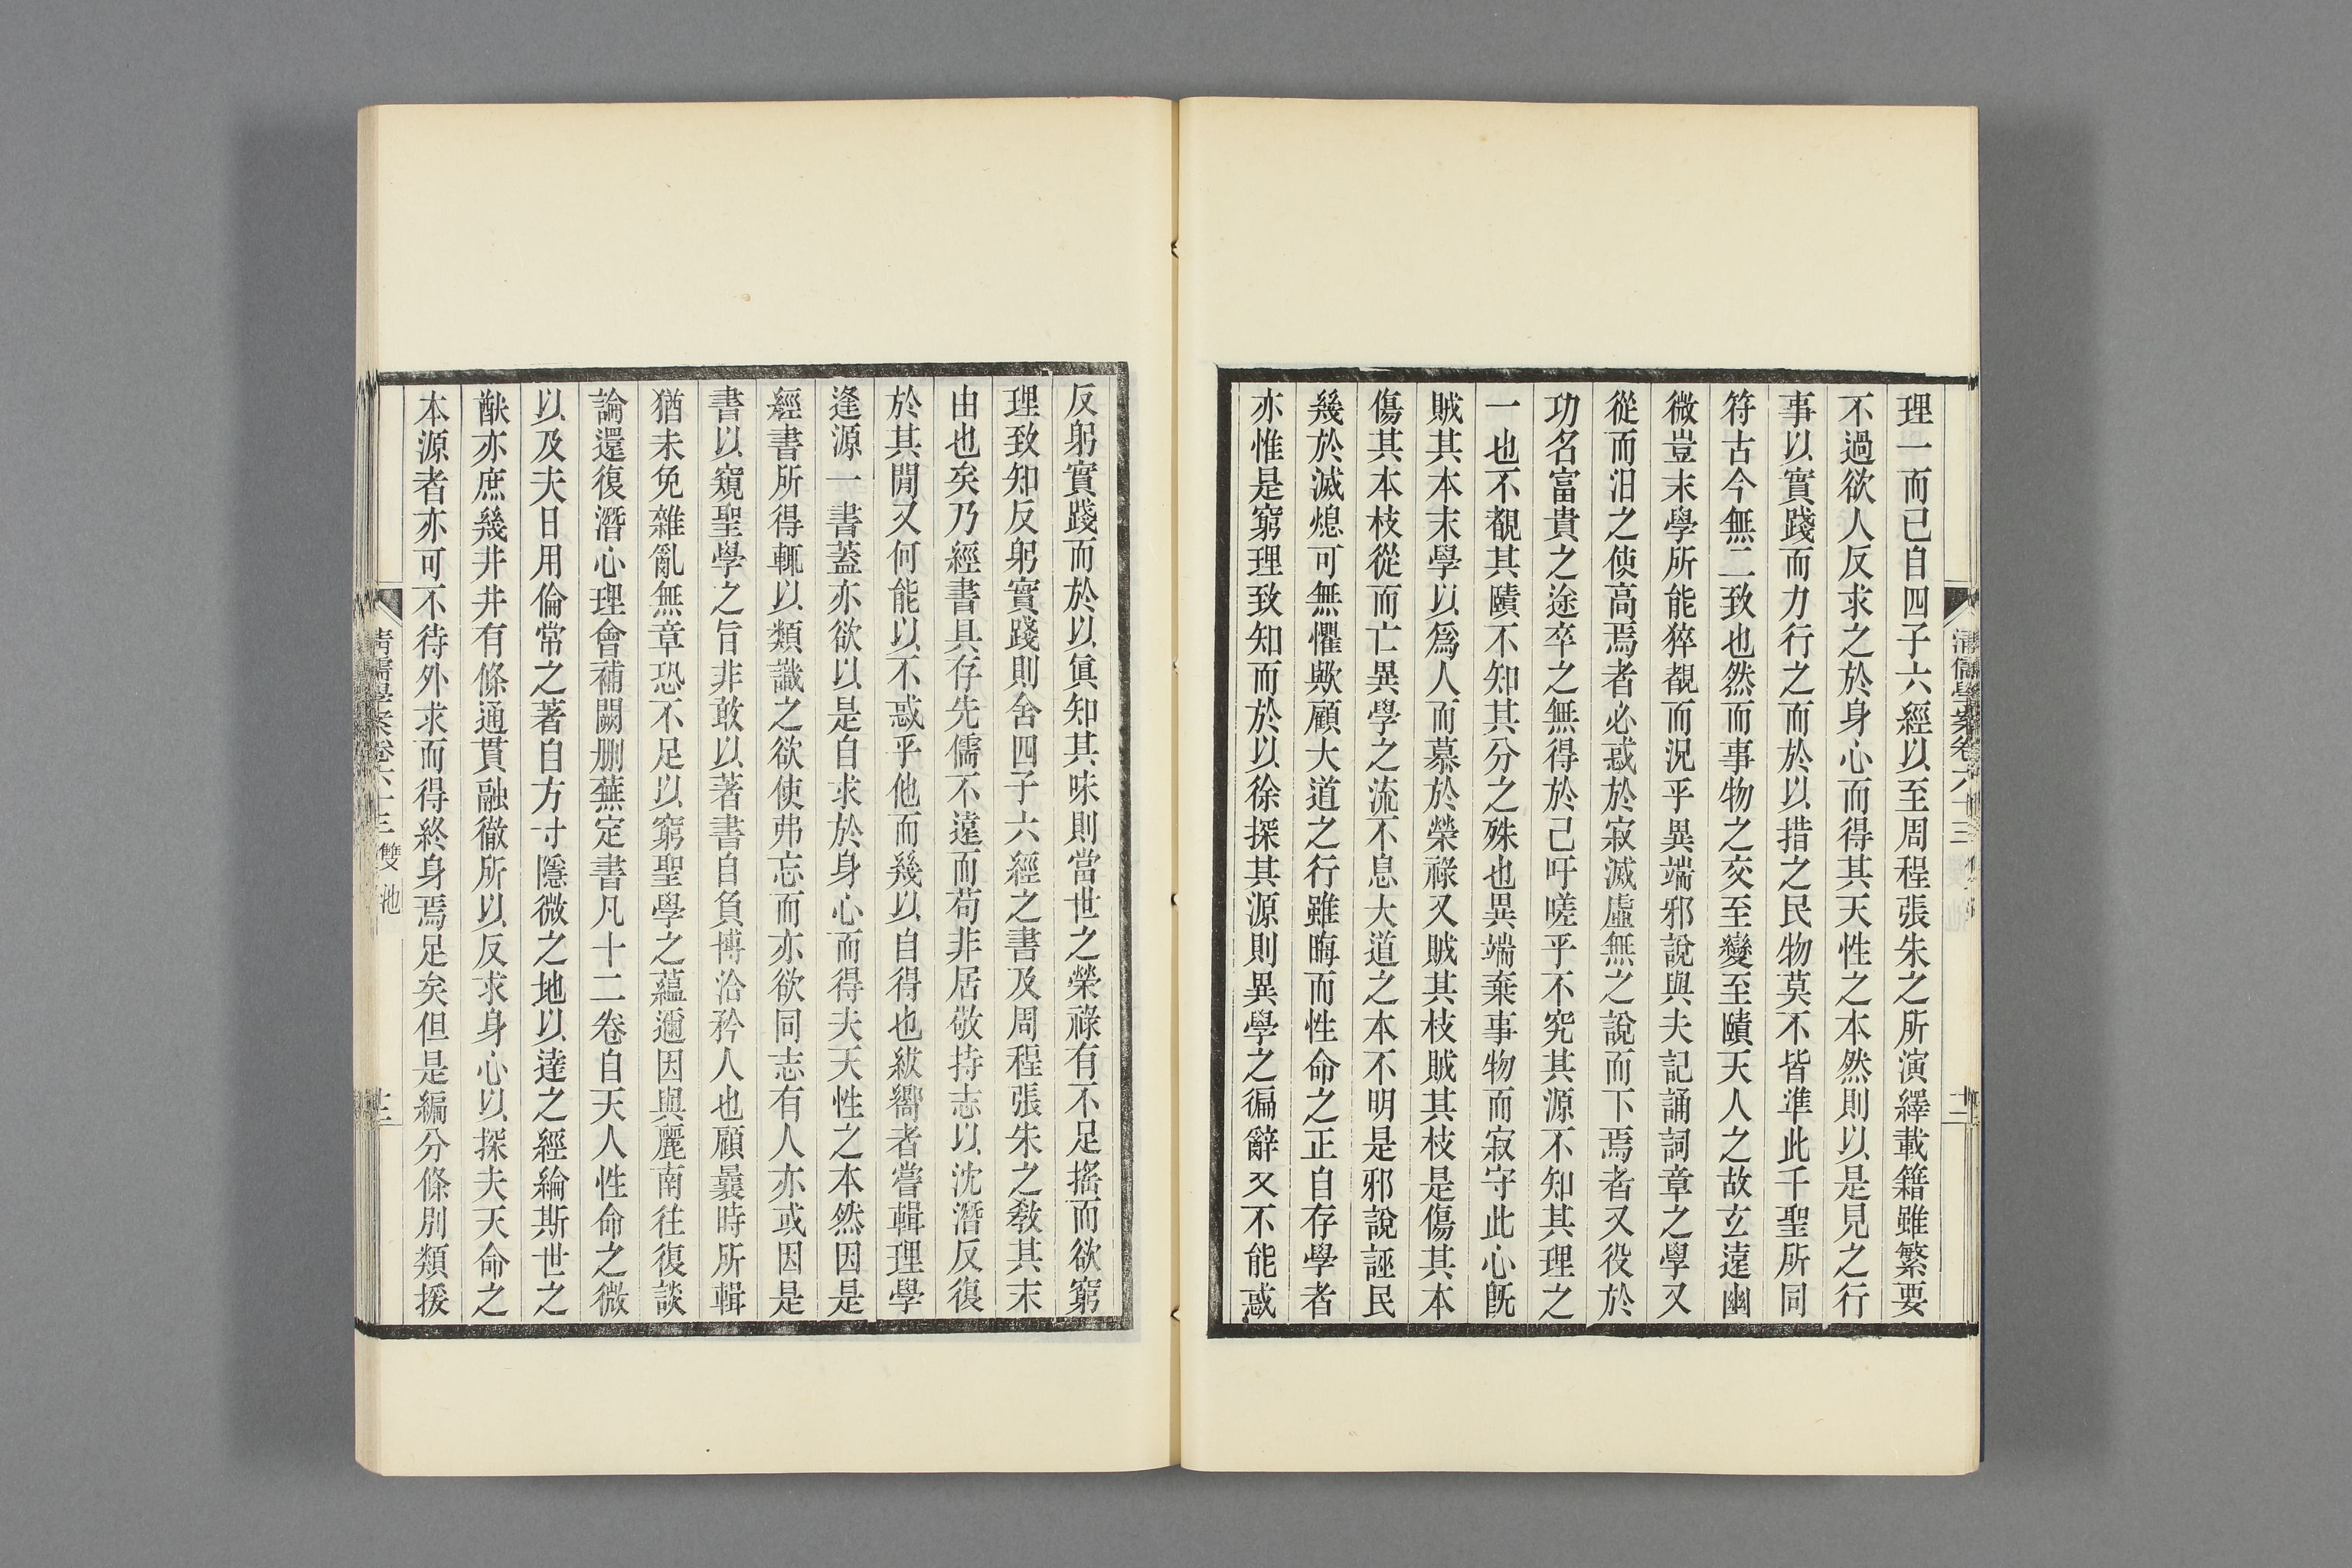 理一而已自四子六經以至周程張朱之所演繹載籍雖繁要
不過欲人反求之於身心而得其天性之本然則以是見之行
事以實踐而力行之而於以措之民物莫不皆準此千聖所同
符古今無二致也然而事物之交至變至賾天人之故玄遠幽
微豈末學所能猝覩而況乎異端邪說與夫記誦詞章之學又
從而汨之使高焉者必惑於寂滅虛無之說而下焉者又役於
功名富貴之途卒之無得於己吁嗟乎不究其源不知其理之
一也不覩其賾不知其分之殊也異端棄事物而寂守此心旣
賊其本末學以爲人而慕於榮祿又賊其枝賊其枝是傷其本
傷其本枝從而亡異學之流不息大道之本不明是邪說誣民
幾於滅熄可無懼歟顧大道之行雖晦而性命之正自存學者
亦惟是窮理致知而於以徐探其源則異學之徧辭又不能惑
清儒學案卷六十三
十二
反躬實踐而於以眞知其味則當世之榮祿有不足搖而欲窮
理致知反躬實踐則舍四子六經之書及周程張朱之敎其末
由也矣乃經書具存先儒不遠而苟非居敬持志以沈潛反復
於其閒又何能以不惑乎他而幾以自得也紱嚮者嘗輯理學
逢源一書蓋亦欲以是自求於身心而得夫天性之本然因是
經書所得輒以類識之欲使弗忘而亦欲同志有人亦或因是
書以窺聖學之旨非敢以著書自負博洽矜人也顧曩時所輯
猶未免雜亂無章恐不足以窮聖學之蘊邇因與麗南往復談
論還復潛心理會補闕刪蕪定書凡十二卷自天人性命之微
以及夫日用倫常之著自方寸隱微之地以達之經綸斯世之
猷亦庶幾井井有條通貫融徹所以反求身心以探夫天命之
本源者亦可不待外求而得終身焉足矣但是編分條別類援
清儒學案卷六十三 雙池